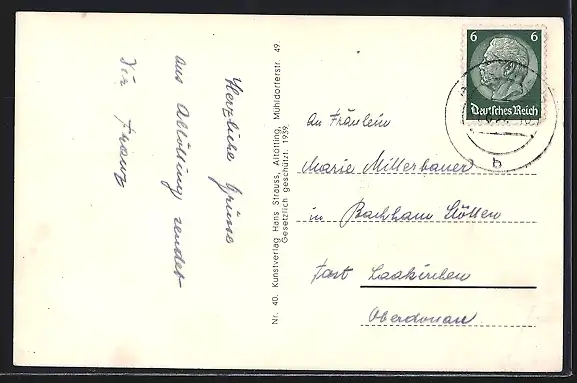 Herzliche Grüsse
aus Altötting sendet
Dir Franz
Nr. 40. Kunstverlag Hans Strauss, Altötting, Mühldorferstr. 49.
Gesetzlich geschützt. 1939.
6 6
Deutsches Reich
b
An Fräulein
Marie Mitterbauer
in Bachham Stötten
Post Laakirchen
Oberdonau